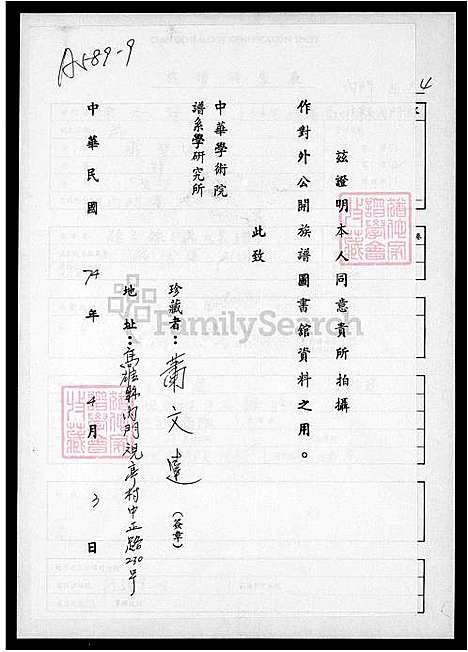 A589-9
4
茲證明本人同意貴所拍攝
作對外公開族譜圖書館資料之用。
此致
中華學術院
譜系學研究所
珍藏者：蕭文達（簽章）
地址：高雄縣內門觀亭村中正路230号
中華民國74年4月3日
FamilySearch